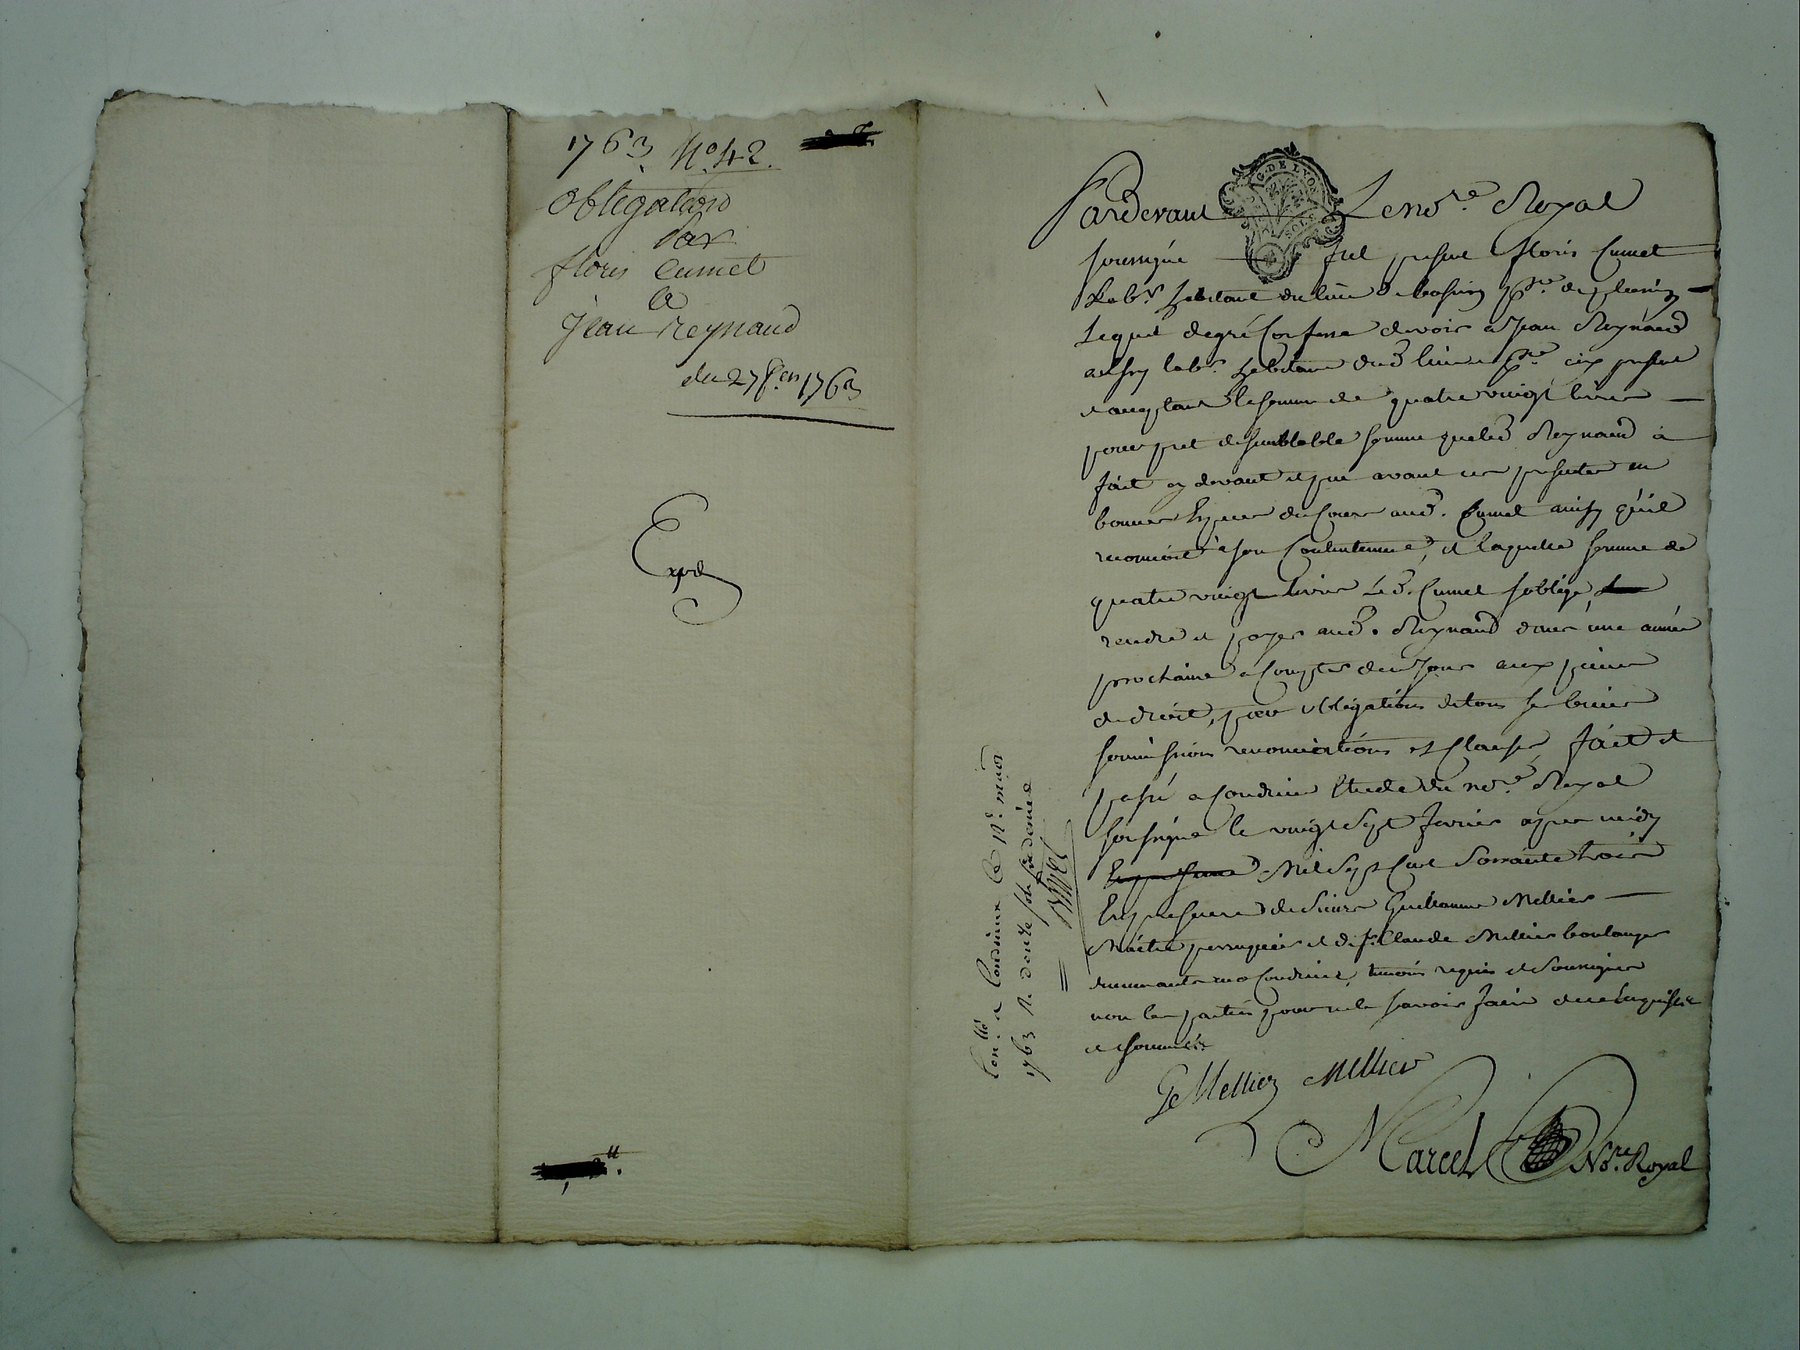 1763 N.º 42.
obligation
Par
floris Cumet
a
Jean Reynaud
du 27 fev.er 1763
Exped
Pardevant Le no.re Royal
G. DE LYON
soussigné fut présent floris Cumet
Lab.r habitant du lieu de
Lequel de gré Confesse devoir a Jean Reynaud
aussy lab.r habitant dud lieu et P.sse icy présent
et acceptant la somme de quatre vingt livres
pour pret de semblable somme que led Reynaud a
fait cy devant et que avant ces presentes en
bonnes Especes de Cours aud. Cumet ainsy qu'il
reconnoit a son Contentement, et laquelle somme de
quatre vingt livres Led. Cumet s'oblige
rendre et payer aud. Reynaud dans une année
prochaine a Compter de ce Jour aux peines
de droit, par obligations de tous ses biens
soumissions renonciations et Clauses, fait et
passé a Condrieu Etude du no.re Royal
soussigné le vingt Sept fevrier apres midy
Mil Sept Cent Soixante trois
En presence de Sieurs Guillaume Mellier
Maitre perruquier et de s.r Claude Mellier boulanger
demeurants aud Condrieu, temoins requis et Soussignés
non les parties pour ne le scavoir faire de ce Enquises
et sommées
G Mellier Mellier
Marcel No.re Royal
Con.llé a Condrieu le 12.e mars
1763 R. douze sols six deniers
Marcel